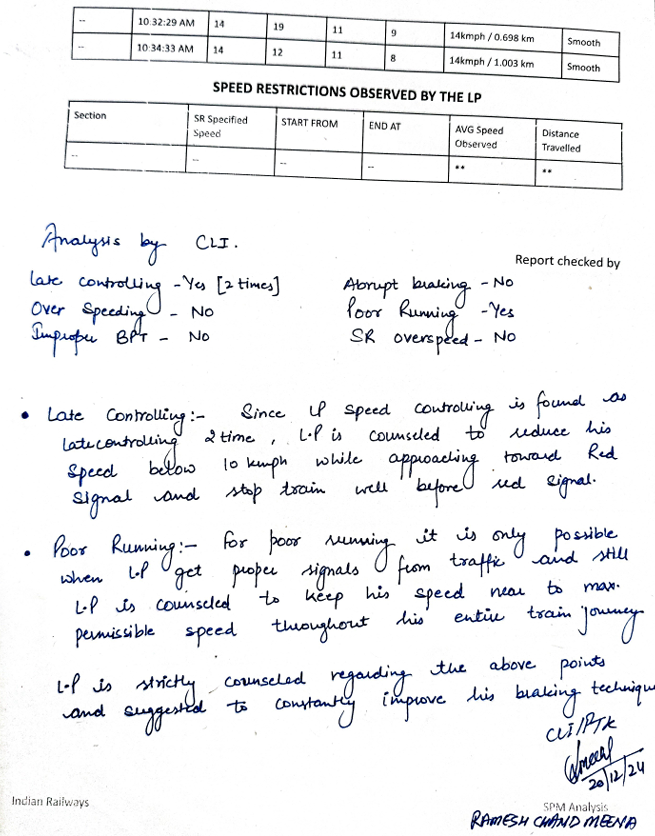 -- 10:32:29 AM 14 19 11 9 14kmph / 0.698 km Smooth
-- 10:34:33 AM 14 12 11 8 14kmph / 1.003 km Smooth
SPEED RESTRICTIONS OBSERVED BY THE LP
Section SR Specified Speed START FROM END AT AVG Speed Observed Distance Travelled
-- -- -- -- ** **
Analysis by CLI.
Report checked by
Late controlling - Yes [2 times] Abrupt braking - No
Over Speeding - No Poor Running - Yes
Improper BPT - No SR overspeed - No
• Late Controlling:- Since LP speed controlling is found as
late controlling 2 time, L.P is counseled to reduce his
speed below 10 kmph while approaching toward Red
signal and stop train well before red signal.
• Poor Running:- For poor running it is only possible
when L.P get proper signals from traffic and still
L.P is counseled to keep his speed near to max.
permissible speed throughout his entire train journey
L.P is strictly counseled regarding the above points
and suggested to constantly improve his braking technique
CLI/PTK
20/12/24
Indian Railways
SPM Analysis
RAMESH CHAND MEENA